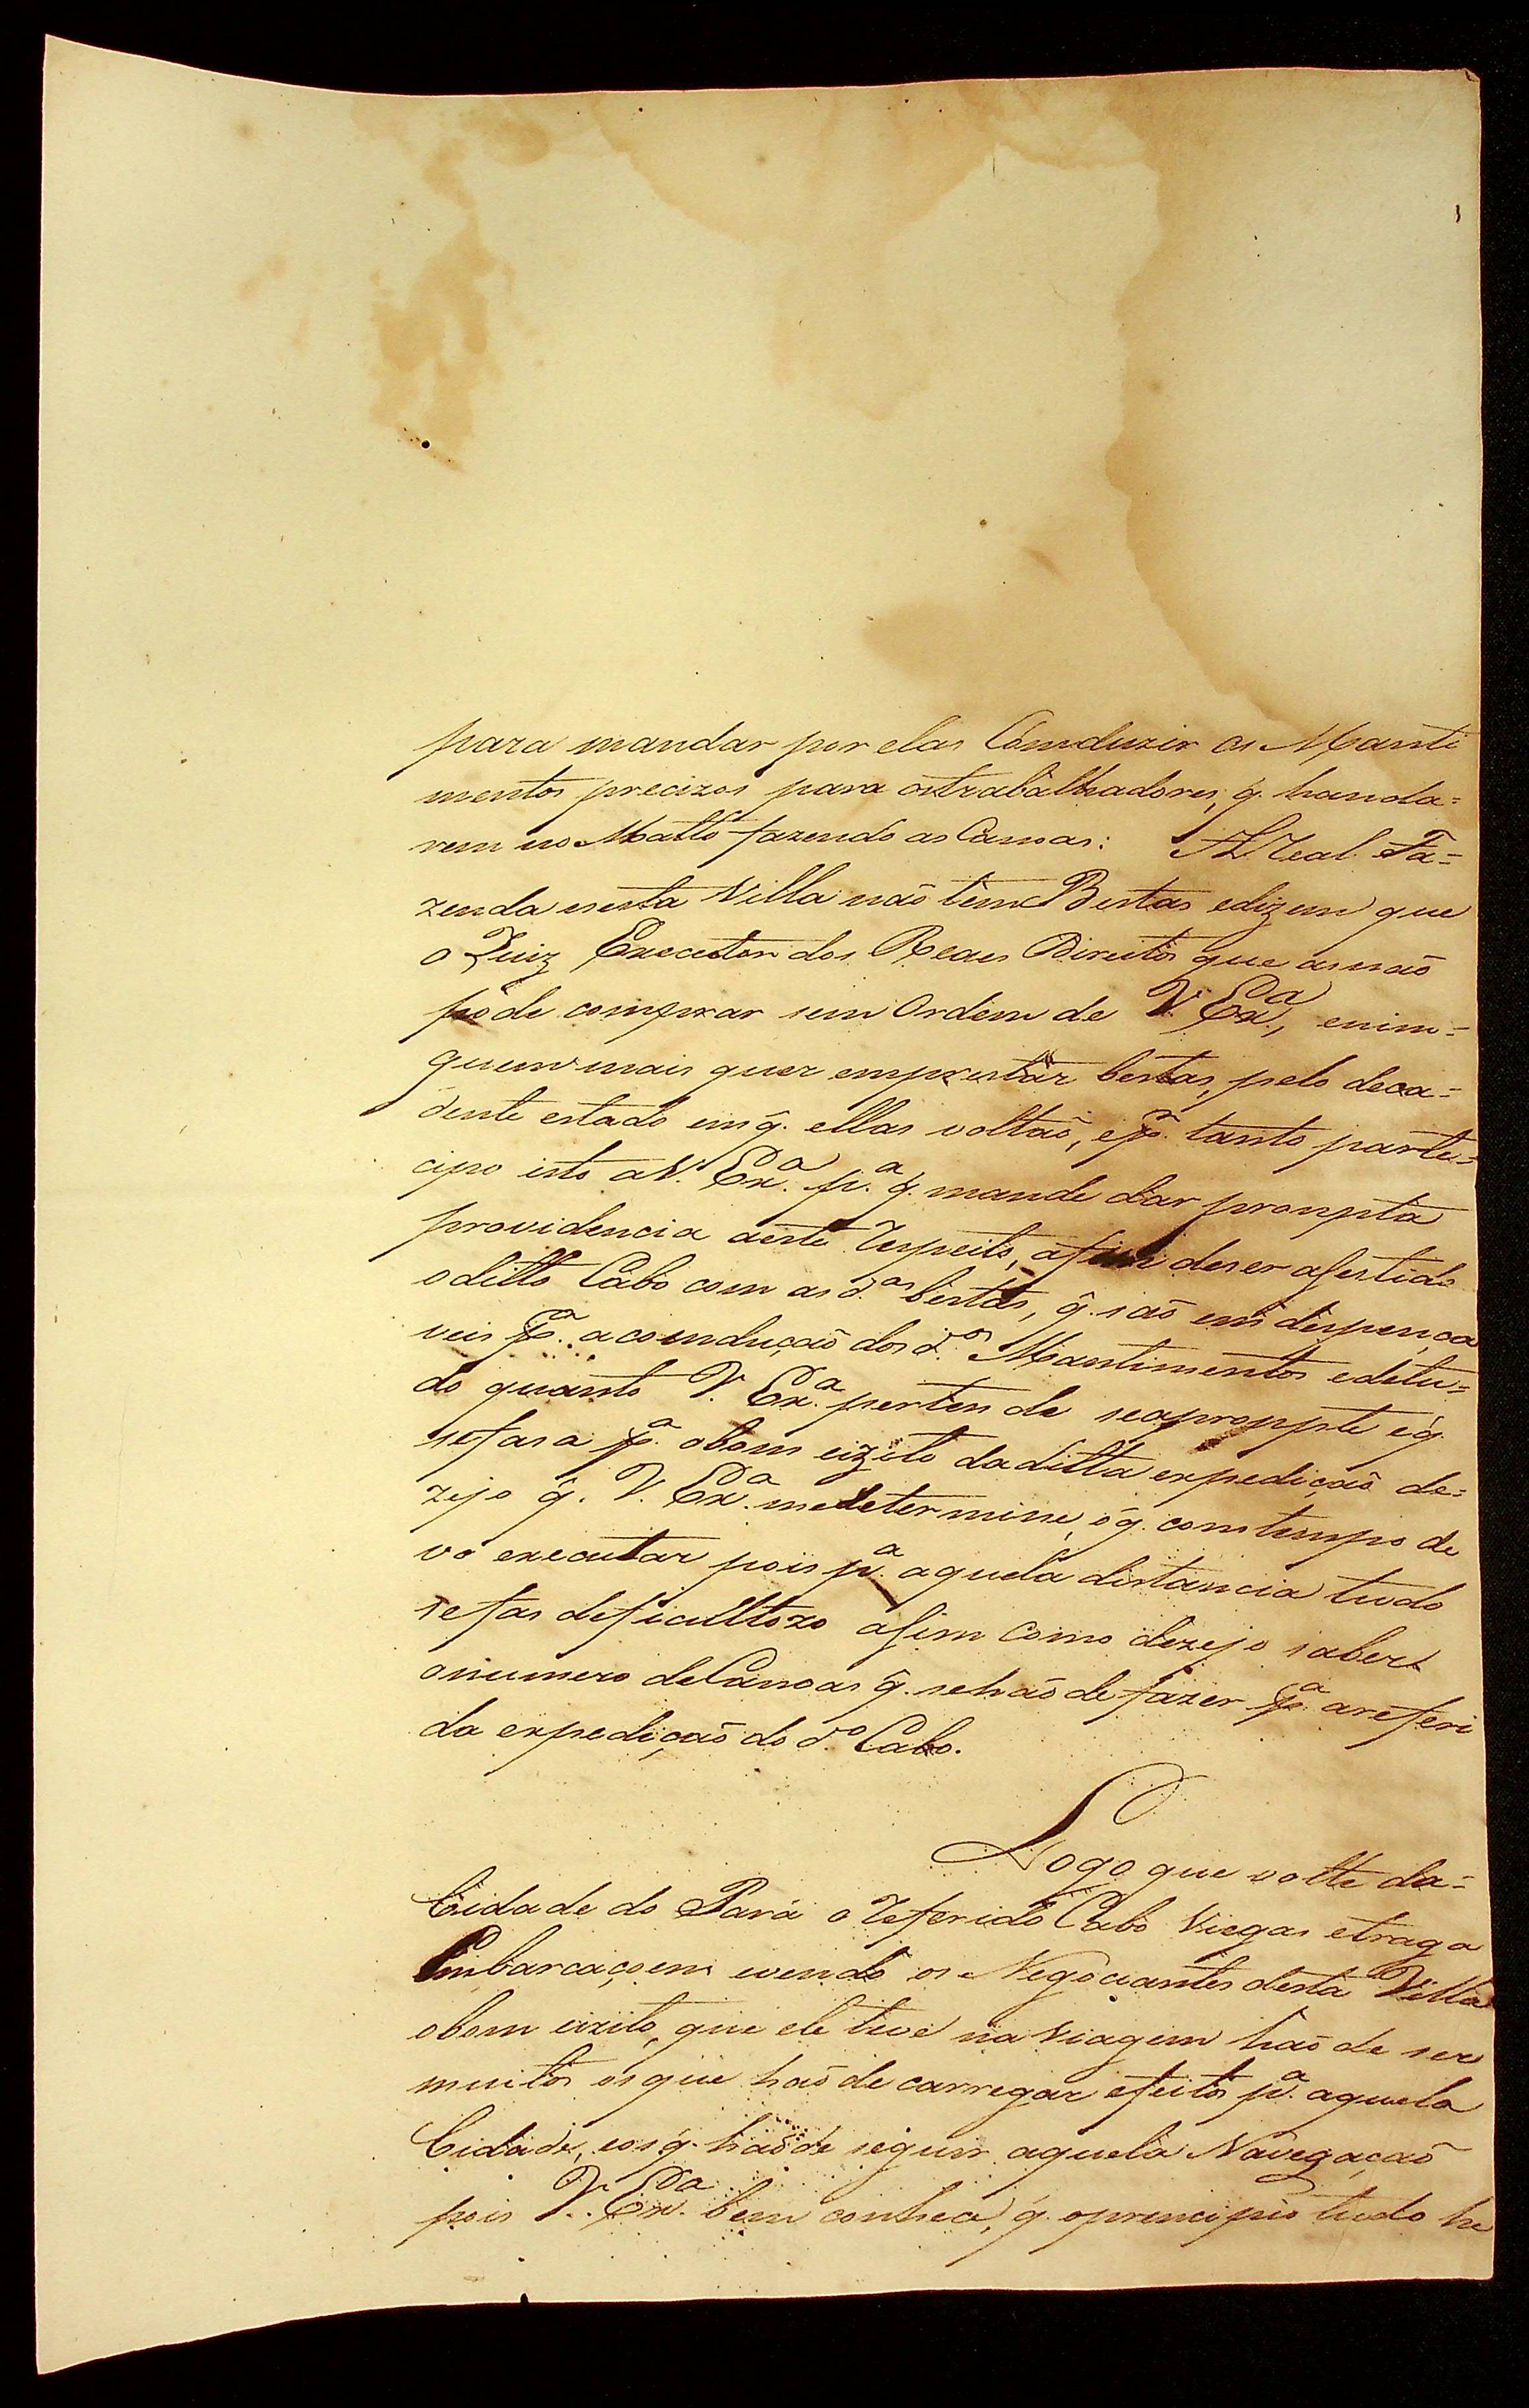 para mandar por elas Comduzir os Manti
mentos precizos para ostrabalhadores, q̃. handa=
rem no Matto fazendo as Canoas: A Real Fa=
zenda nesta Villa naõ tem Bestas edizem que
o Juiz Executor dos Reaes Direitos que asnaõ
póde comprar sem Ordem de V. Exª., enim=
guem mais quer emprestar bestas, pelo deca=
dente estado em q̃. ellas voltaõ, epr. tanto parte=
cipo isto a V. Exª. pª. q̃. mande dar prompta
providencia aeste Respeito, afim deser asestido
oditto Cabo com as dªs bestas, q̃. saõ emdispença
veis pª. acomduçaõ dos dos. Mantimentos edetu=
do quanto V. Exª. pertende seapronpte eq̃.
sefasa pª. obom eizito daditta expediçaõ de=
zejo q̃. V. Exª. medetermine, oq̃. comtempo de
vo executar pois pª. aquela distancia tudo
sefas deficultozo asim como dezejo saber
onumero deCanoas q̃. sehaõ de fazer pª. arefferi
da expediçaõ do do. Cabo.
Logo que volte da=
Cidade do Pará o Referido Cabo Viegas etraga
Embarcaçoens evendo os Negociantes desta Villa
obom eizito, que ele teve na Viagem haõ de ser
muitos osque haõ de carregar efeitos pª. aquela
Cidade, eosq̃. haõde seguir aquela Navegaçaõ
pois V. Exª. bem conhece, q̃. oprincipio tudo he